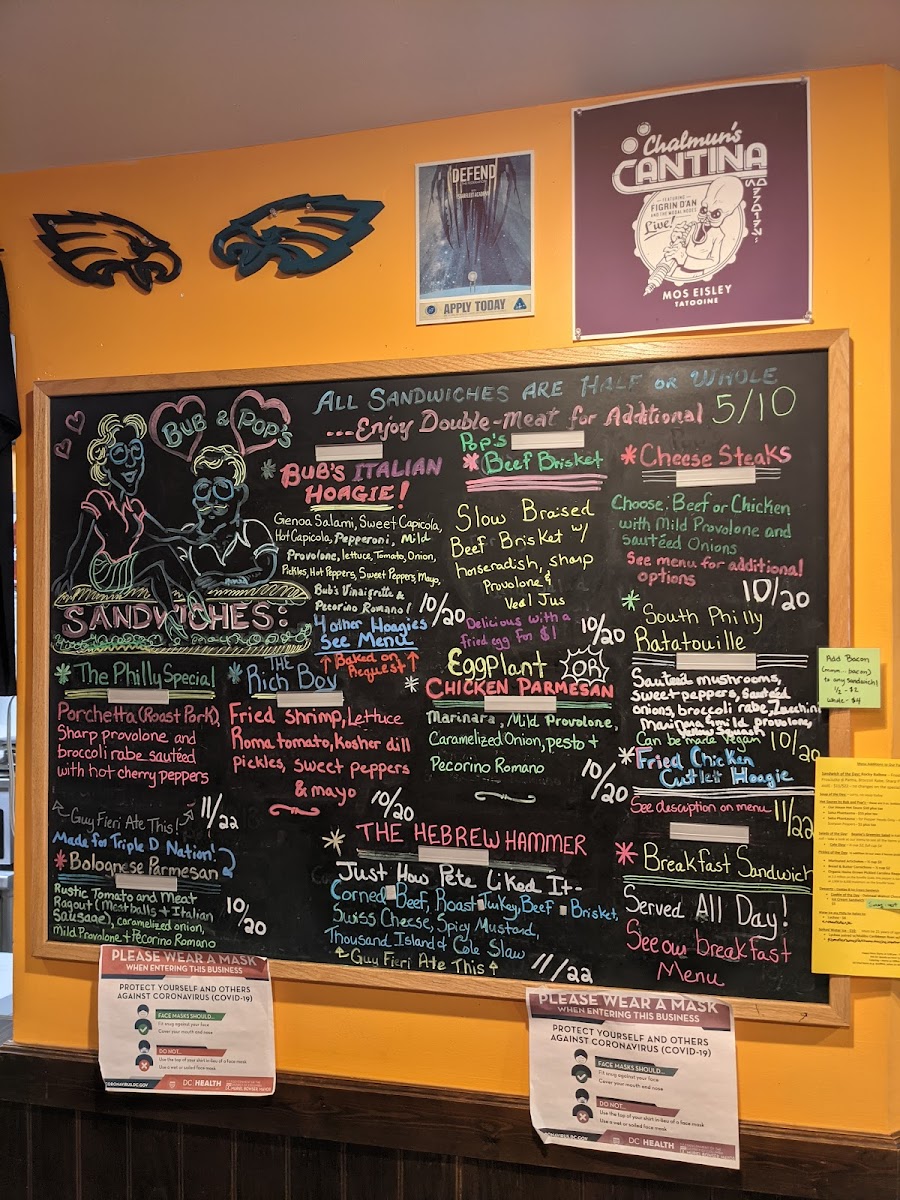 DEFEND
APPLY TODAY
Chalmun's
CANTINA
SPACEPORT
FEATURING
FIGRIN D'AN
AND THE MODAL NODES
Live!
MOS EISLEY
TATOOINE
BUB & POP'S
SANDWICHES:
ALL SANDWICHES ARE HALF OR WHOLE
...Enjoy Double-Meat for Additional 5/10
BUB'S ITALIAN
HOAGIE!
Genoa Salami, Sweet Capicola,
Hot Capicola, Pepperoni, Mild
Provolone, lettuce, Tomato, Onion,
Pickles, Hot Peppers, Sweet Peppers, Mayo,
Bub's Vinaigrette &
Pecorino Romano!
10/20
4 other Hoagies
See Menu
↑ Baked on ↑
Request
Pop's
Beef Brisket
Slow Braised
Beef Brisket w/
horseradish, sharp
Provolone &
Veal Jus
Delicious with a
fried egg for $1
10/20
* Cheese Steaks
Choose: Beef or Chicken
with Mild Provolone and
sautéed Onions
See menu for additional
options
10/20
* The Philly Special
Porchetta (Roast Pork),
Sharp provolone and
broccoli rabe sautéed
with hot cherry peppers
Guy Fieri Ate This!
11/22
Made for Triple D Nation!
* Bolognese Parmesan
Rustic Tomato and Meat
Ragout (Meatballs + Italian
Sausage), caramelized onion,
Mild Provolone + Pecorino Romano
10/20
* THE
Rich Boy
Fried shrimp, Lettuce
Roma tomato, Kosher dill
pickles, sweet peppers
& mayo
10/20
* EGGPlant OR
CHICKEN PARMESAN
Marinara, Mild Provolone,
Caramelized Onion, pesto +
Pecorino Romano
10/20
* THE HEBREW HAMMER
Just How Pete Liked It-
Corned Beef, Roast Turkey, Beef Brisket,
Swiss Cheese, Spicy Mustard,
Thousand Island & Cole Slaw
↑ Guy Fieri Ate This ↑
11/22
* South Philly
Ratatouille
Sauteed mushrooms,
sweet peppers, sauteed
onions, broccoli rabe, Zucchini
Marinara & mild provolone,
Yellow Squash
Can be made Vegan 10/20
* Fried Chicken
Cutlet Hoagie
See description on menu 11/22
* Breakfast Sandwich
Served All Day!
See our breakfast
Menu
Add Bacon
(mmm...bacon)
to any sandwich!
1/2 - $2
whole - $4
PLEASE WEAR A MASK
WHEN ENTERING THIS BUSINESS
PROTECT YOURSELF AND OTHERS
AGAINST CORONAVIRUS (COVID-19)
FACE MASKS SHOULD...
Fit snug against your face
Cover your mouth and nose
DO NOT...
Use the top of your shirt in lieu of a face mask
Use a wet or soiled face mask
CORONAVIRUS.DC.GOV
DC HEALTH
PLEASE WEAR A MASK
WHEN ENTERING THIS BUSINESS
PROTECT YOURSELF AND OTHERS
AGAINST CORONAVIRUS (COVID-19)
FACE MASKS SHOULD...
Fit snug against your face
Cover your mouth and nose
DO NOT...
Use the top of your shirt in lieu of a face mask
Use a wet or soiled face mask
CORONAVIRUS.DC.GOV
DC HEALTH